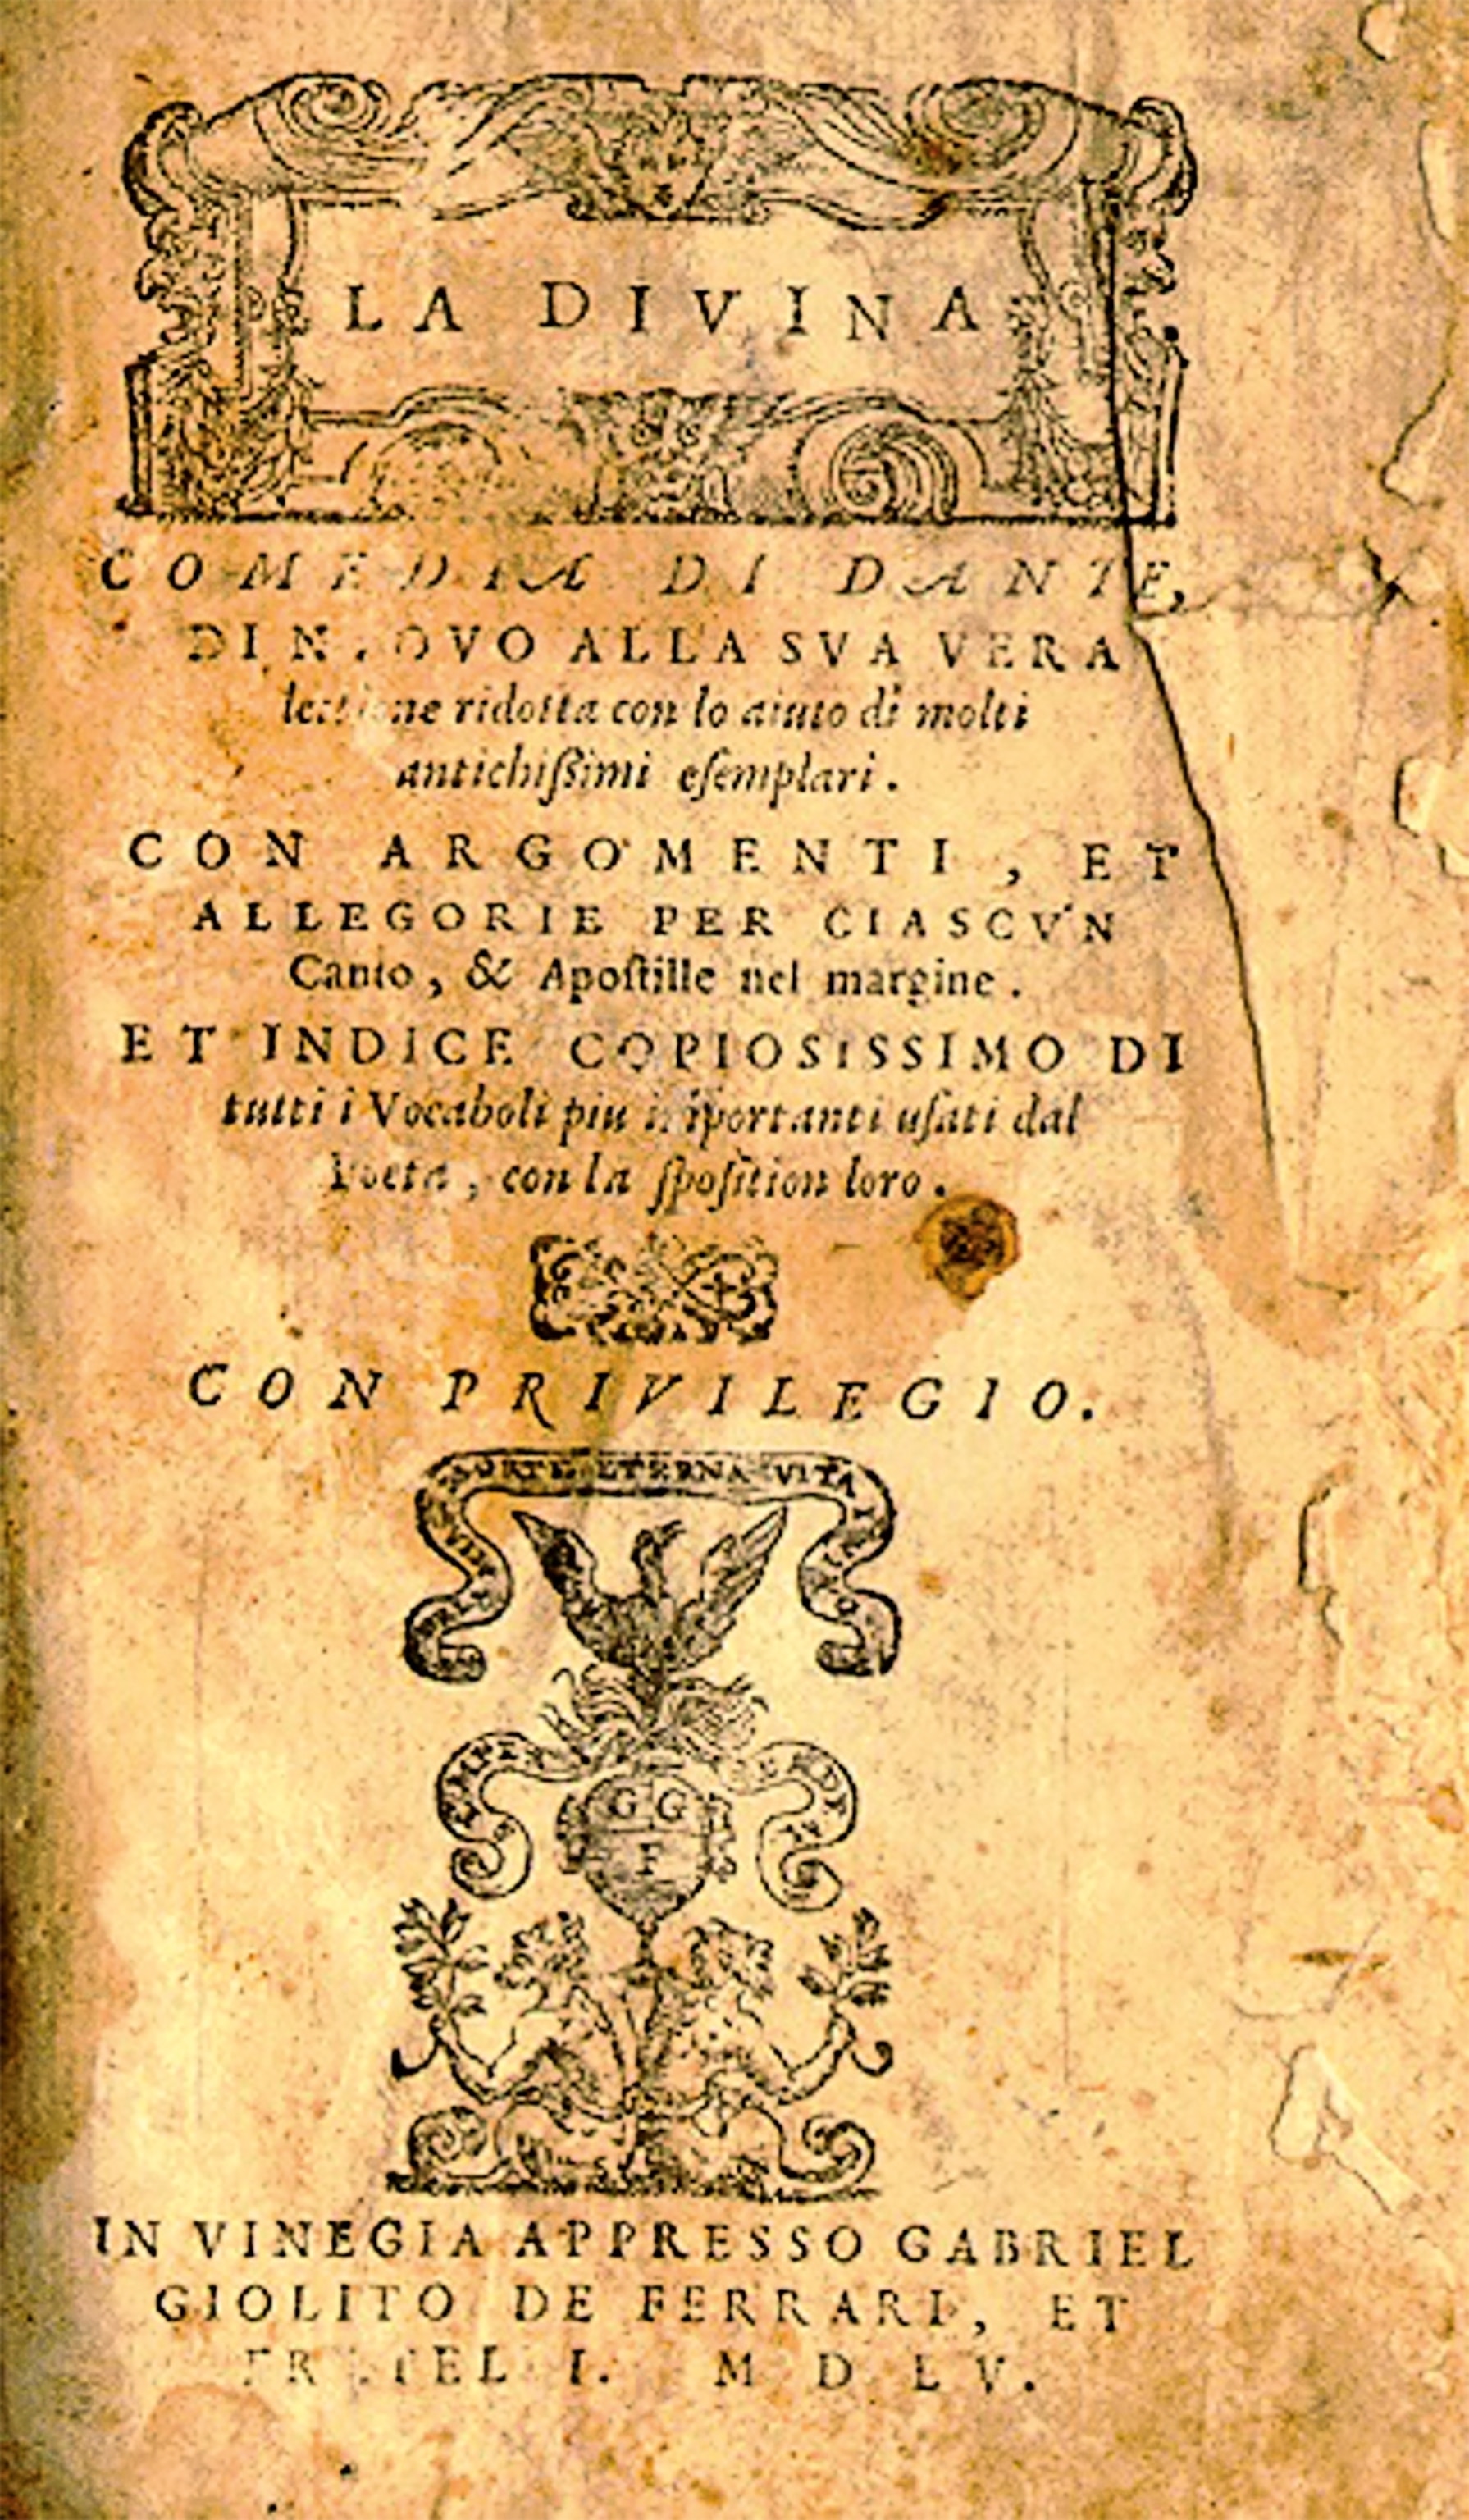 LA DIVINA
COMEDIA DI DANTE,
DI NVOVO ALLA SVA VERA
lettione ridotta con lo aiuto di molti
antichißimi eſemplari.
CON ARGOMENTI, ET
ALLEGORIE PER CIASCVN
Canto, & Apoſtille nel margine.
ET INDICE COPIOSISSIMO DI
tutti i Vocaboli piu importanti uſati dal
Poeta, con la ſpoſition loro.
CON PRIVILEGIO.
MORTE ETERNA VITA
SEMPER
G G
F
IN VINEGIA APPRESSO GABRIEL
GIOLITO DE FERRARI, ET
FRATELLI. MDLV.